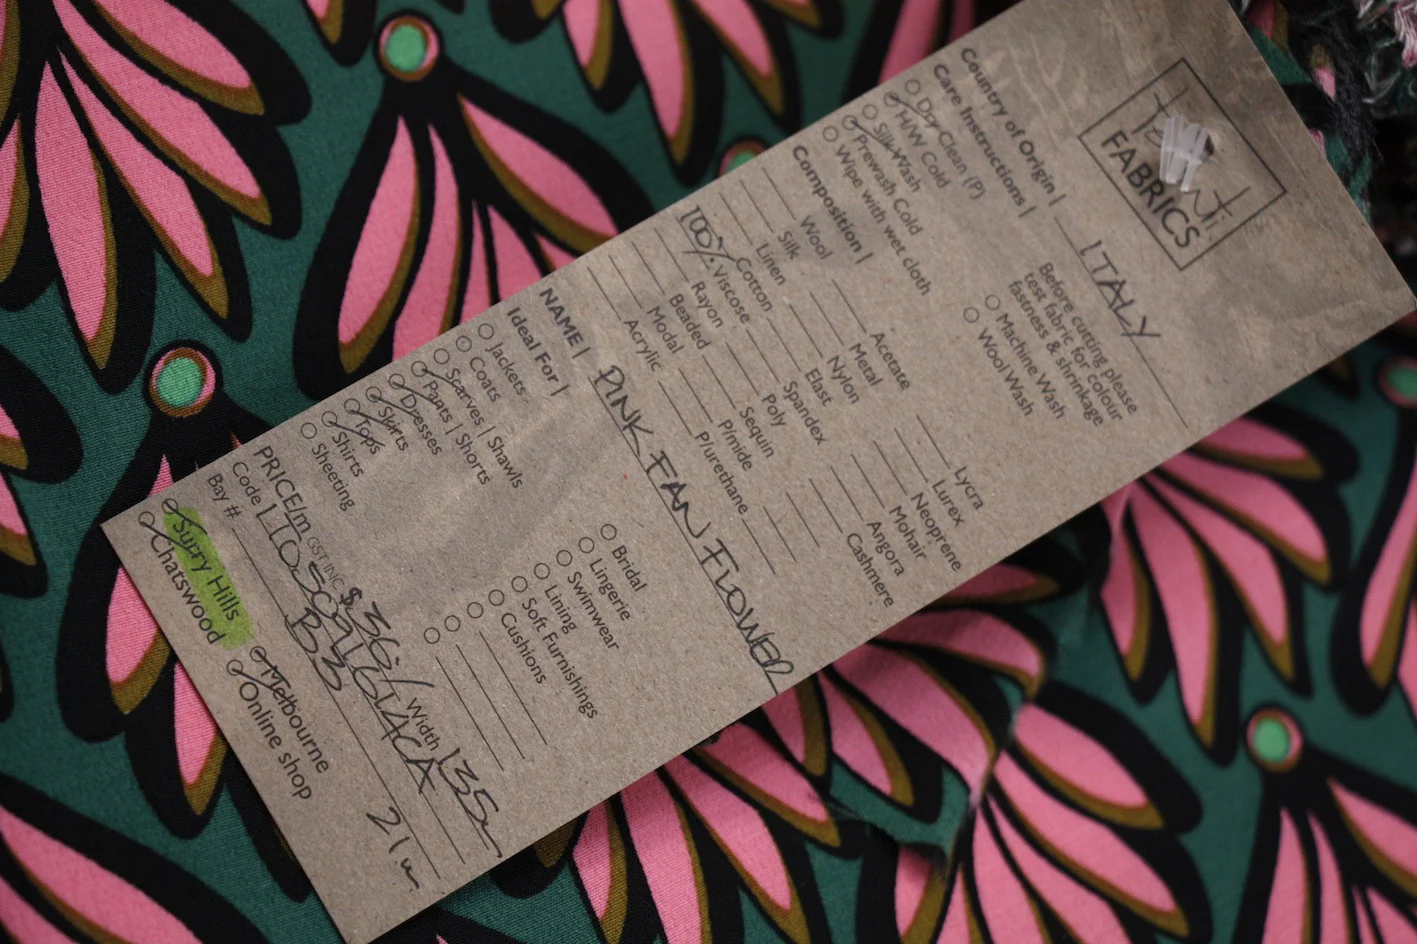 FABRICS
Country of Origin | ITALY
Care Instructions |
Before cutting please
test fabric for colour
fastness & shrinkage
Dry Clean (P)
H/W Cold
Silk Wash
Prewash Cold
Wipe with wet cloth
Machine Wash
Wool Wash
Composition |
Wool
Silk
Linen
Cotton
100% Viscose
Rayon
Beaded
Modal
Acrylic
Acetate
Metal
Nylon
Elast
Spandex
Poly
Sequin
P/mide
P/urethane
Lycra
Lurex
Neoprene
Mohair
Angora
Cashmere
NAME | PINK FAN FLOWER
Ideal For |
Jackets
Coats
Scarves | Shawls
Pants | Shorts
Dresses
Skirts
Tops
Shirts
Sheeting
Bridal
Lingerie
Swimwear
Lining
Soft Furnishings
Cushions
PRICE/m GST INC $36./ Width 135
Code |
Bay # B3 21m
Surry Hills
Chatswood
Melbourne
Online shop